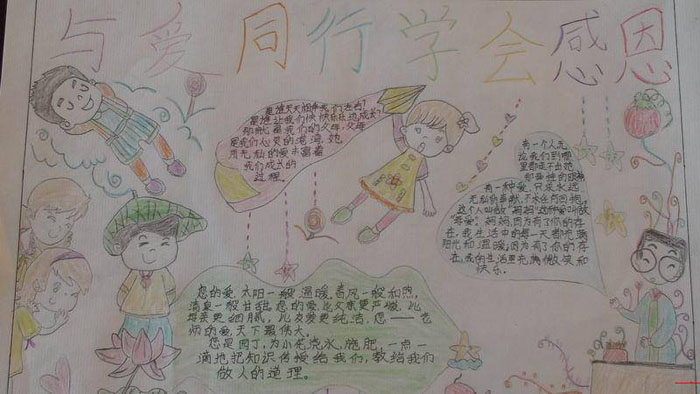 与爱同行学会感恩
是谁天天相伴我们左右?
是谁让我们快快乐乐地成长?
那就是我们的父母,父母
是我们心灵的港湾,她
用无私的爱丰富着
我们成长的
过程。
有一个人无
论我们到哪
里都走不出她
有一种爱,只求永远
无私的奉献,不求任何回抱
这个人叫做"妈妈"这种爱叫做
母爱!妈妈,因为有了你的存
在,我生活中的每一天都充满
阳光和温暖;因为有了你的存
在,我的生活里充满微笑和
快乐。
您的爱,太阳一般温暖,春风一般和煦,
清泉一般甘甜。您的爱,比父亲更严峻,比
母亲更细腻,比友爱更纯洁。您——老
师的爱,天下最伟大。
您是园丁,为小花浇水,施肥,一点一
滴地把知识传授给我们,教给我们
做人的道理。